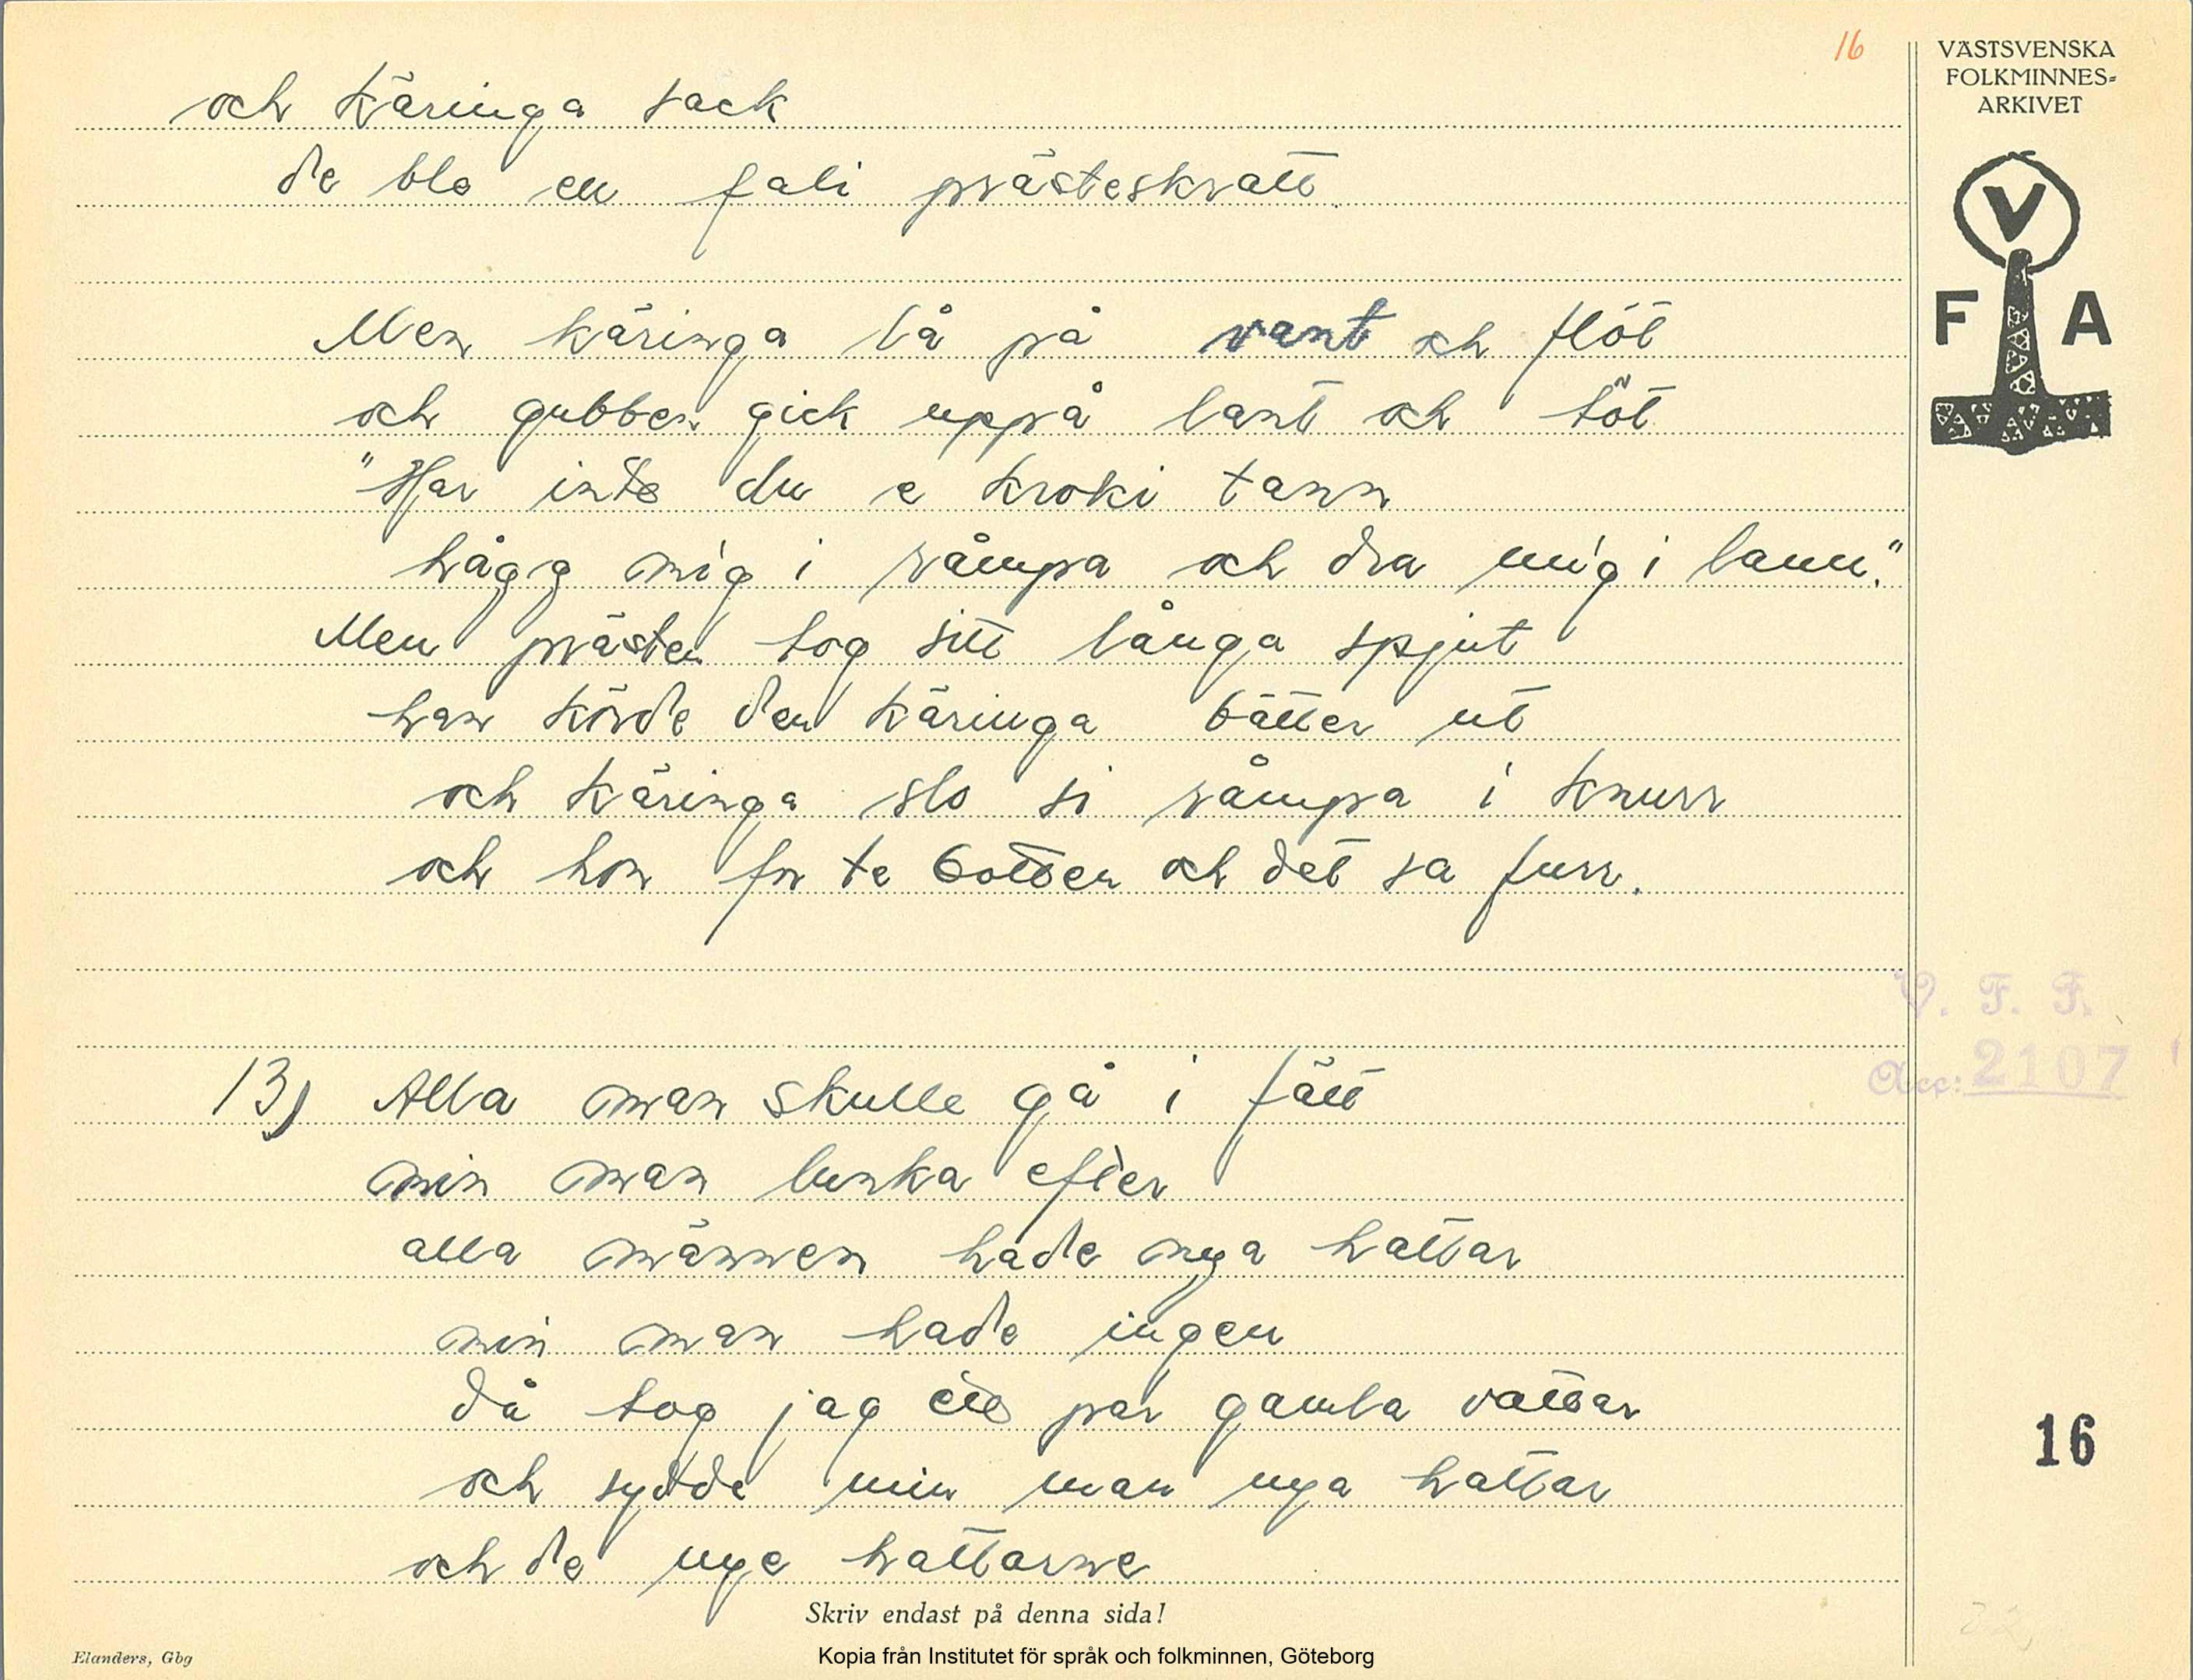 16
VÄSTSVENSKA
FOLKMINNES-
ARKIVET
V
F A
och käringa sack
de ble en fali prästeskratt.
Men käringa lå på vant och flöt
och gubben gick uppå lant och töt
"Har inte du e kroki tann
hågg mig i råmpa och dra mig i lann."
Men prästen tog sitt långa spjut
han körde den käringa bätter ut
och käringa slo si råmpa i knurr
och hon for te botten och det sa furr.
V. F. F.
Acc: 2107
13) Alla man skulle gå i fätt
min man lunka efter
alla männen hade nya hattar
min man hade ingen
då tog jag ett par gamla vattar
och sydde min man nya hattar
och de nye hattarne
16
Skriv endast på denna sida!
Elanders, Gbg
Kopia från Institutet för språk och folkminnen, Göteborg